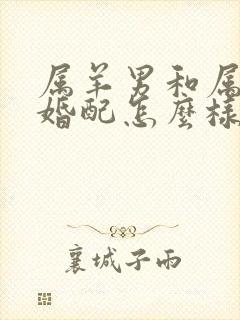 属羊男和属
婚配怎麼樣
襄城子雨